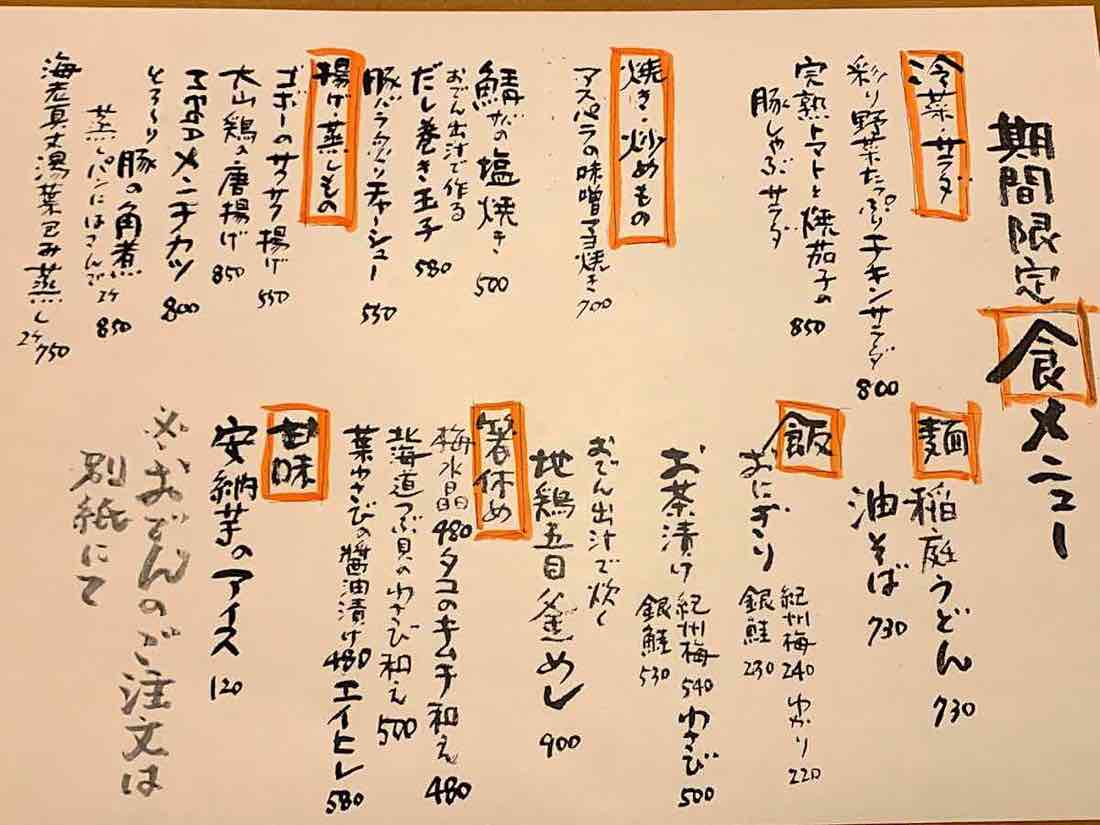 期間限定食メニュー
冷菜・サラダ
彩り野菜たっぷりチキンサラダ 800
完熟トマトと焼茄子の
豚しゃぶサラダ 850
焼き・炒めもの
アスパラの味噌マヨ焼き 700
鯖の塩焼き 500
おでん出汁で作る
だし巻き玉子 580
豚バラカリカリチャーシュー 550
揚げ・蒸しもの
ゴボーのサクサク揚げ 550
大山鶏の唐揚げ 850
メンチカツ 800
とろ〜り豚の角煮
蒸しパンにはさんで 2ケ 850
海老真丈湯葉包み蒸し 2ケ 750
麺
稲庭うどん 730
油そば 730
飯
おにぎり 紀州梅 240 ゆかり 220
銀鮭 230
お茶漬け 紀州梅 540 わさび 500
銀鮭 530
おでん出汁で炊く
地鶏五目釜めし 900
箸休め
梅水晶 480 タコのキムチ和え 480
北海道つぶ貝のわさび和え 500
葉わさびの醤油漬け 480 エイヒレ 580
甘味
安納芋のアイス 120
※おでんのご注文は
別紙にて